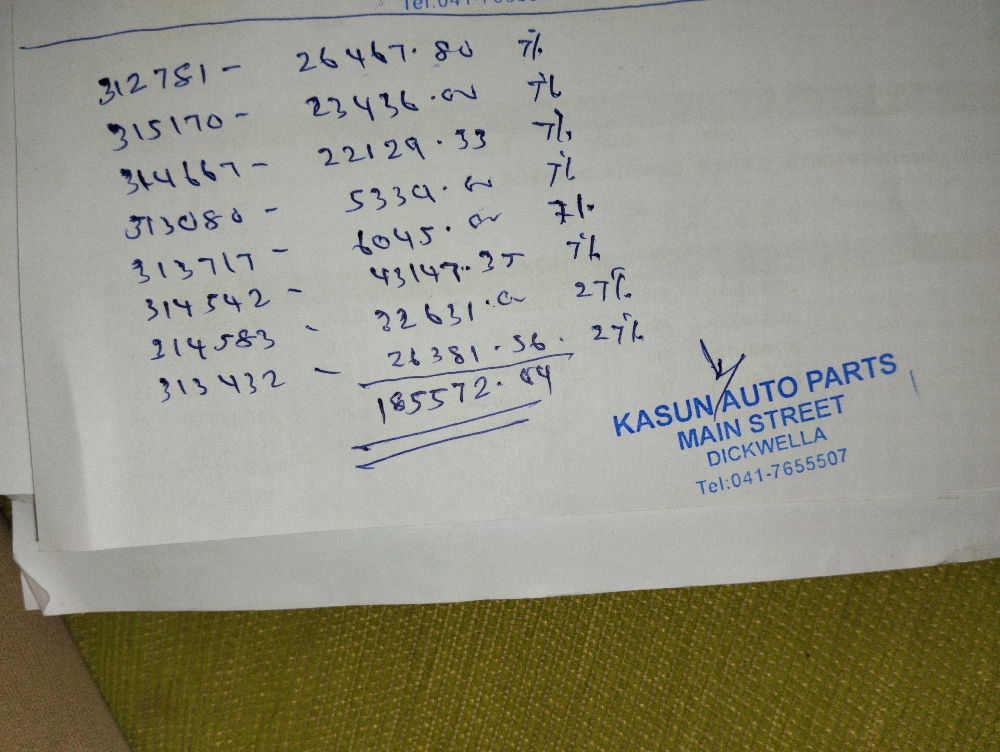 312781 - 26467.80 7%
315170 - 23436.00 7%
314667 - 22129.33 7%
313080 - 5334.00 7%
313717 - 6045.00 7%
314542 - 43147.35 7%
314583 - 32631.00 27%
313432 - 26381.56 27%
185572.04
KASUN AUTO PARTS
MAIN STREET
DICKWELLA
Tel:041-7655507